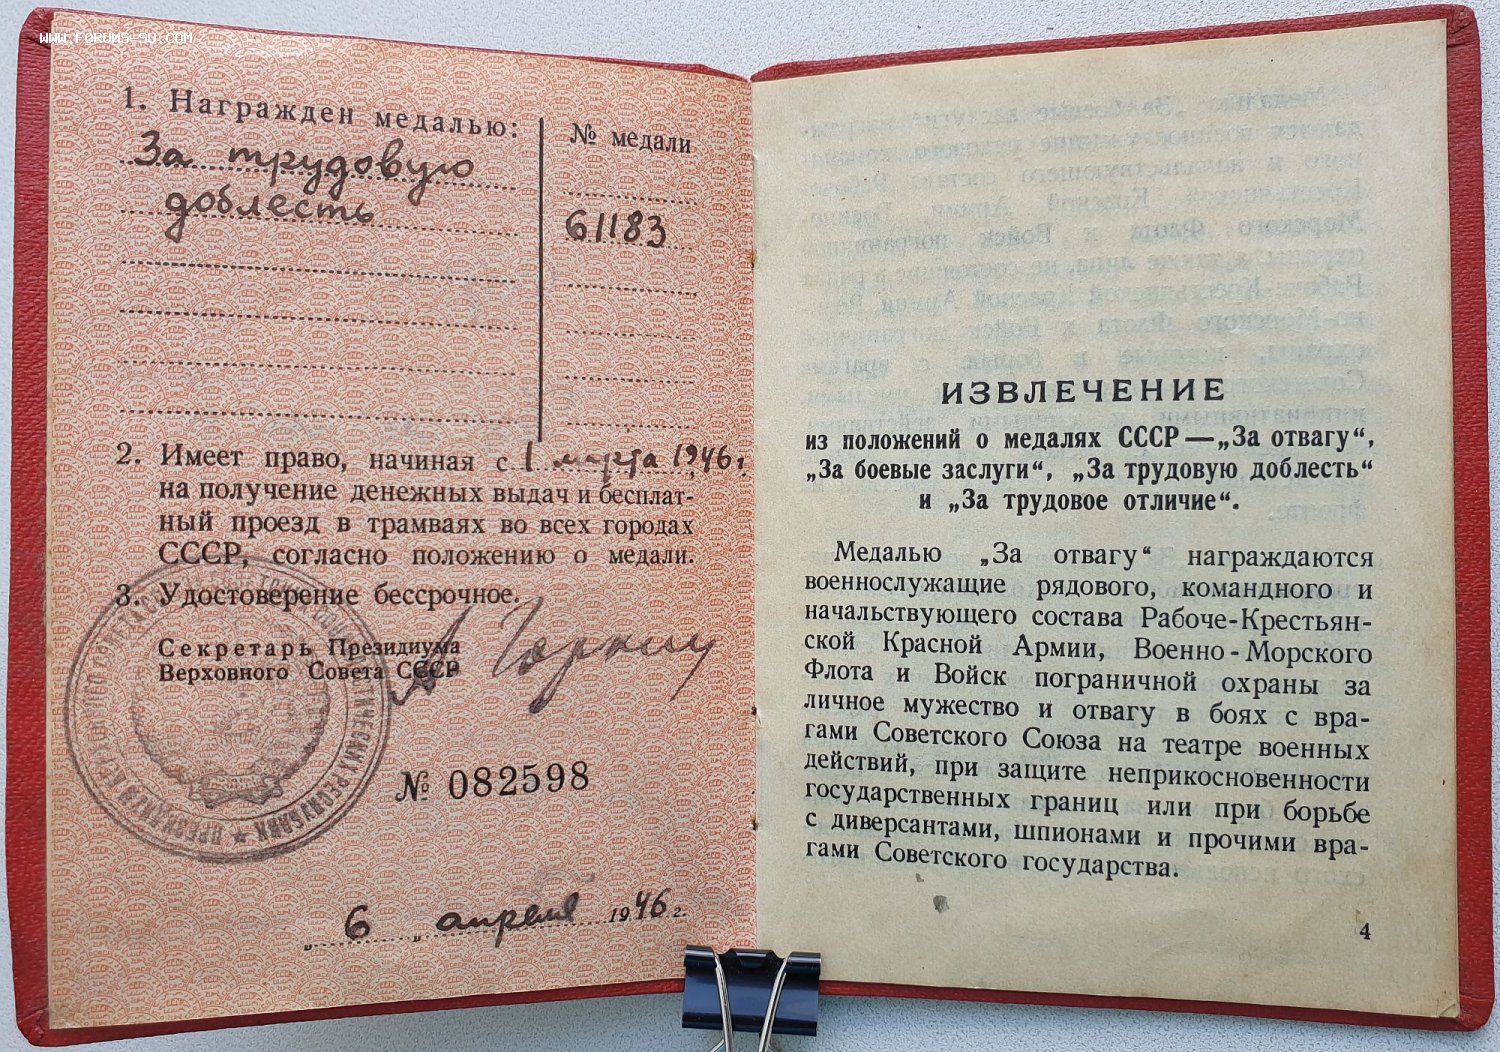 WWW.FORUMS-SU.COM
1. Награжден медалью:
За трудовую
доблесть
№ медали
61183
2. Имеет право, начиная с 1 марта 1946 г
на получение денежных выдач и бесплат-
ный проезд в трамваях во всех городах
СССР, согласно положению о медали.
3. Удостоверение бессрочное.
Секретарь Президиума
Верховного Совета СССР
А Горкин
№ 082598
„ 6 „ апреля 1946 г.
ИЗВЛЕЧЕНИЕ
из положений о медалях СССР — „За отвагу“,
„За боевые заслуги“, „За трудовую доблесть“
и „За трудовое отличие“.
Медалью „За отвагу“ награждаются
военнослужащие рядового, командного и
начальствующего состава Рабоче-Крестьян-
ской Красной Армии, Военно-Морского
Флота и Войск пограничной охраны за
личное мужество и отвагу в боях с вра-
гами Советского Союза на театре военных
действий, при защите неприкосновенности
государственных границ или при борьбе
с диверсантами, шпионами и прочими вра-
гами Советского государства.
4